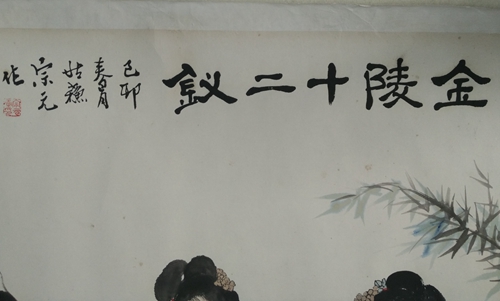 金陵十二釵
己卯
春月
姑蘇
宗元
作